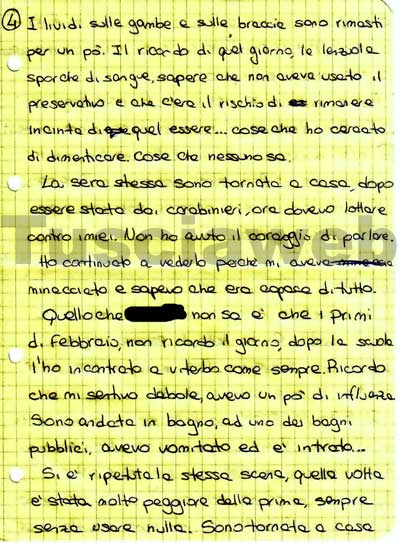 4 I lividi sulle gambe e sulle braccia sono rimasti
per un po'. Il ricordo di quel giorno, le lenzuola
sporche di sangue, sapere che non aveva usato il
preservativo e che c'era il rischio di rimanere
incinta di quel essere... cose che ho cercato
di dimenticare. Cose che nessuno sa.
La sera stessa sono tornata a casa, dopo
essere stata dai carabinieri, ora dovevo lottare
contro i miei. Non ho avuto il coraggio di parlare.
Ho continuato a vederlo perchè mi aveva
minacciato e sapevo che era capace di tutto.
Quello che non sa e' che i primi
di febbraio, non ricordo il giorno, dopo la scuola
l'ho incontrato a viterbo come sempre. Ricordo
che mi sentivo debole, avevo un po' di influenza
Sono andata in bagno, ad uno dei bagni
pubblici, avevo vomitato ed e' entrato...
Si e' ripetuta la stessa scena, quella volta
e' stata molto peggiore della prima, sempre
senza usare nulla. Sono tornata a casa
Tusciaweb